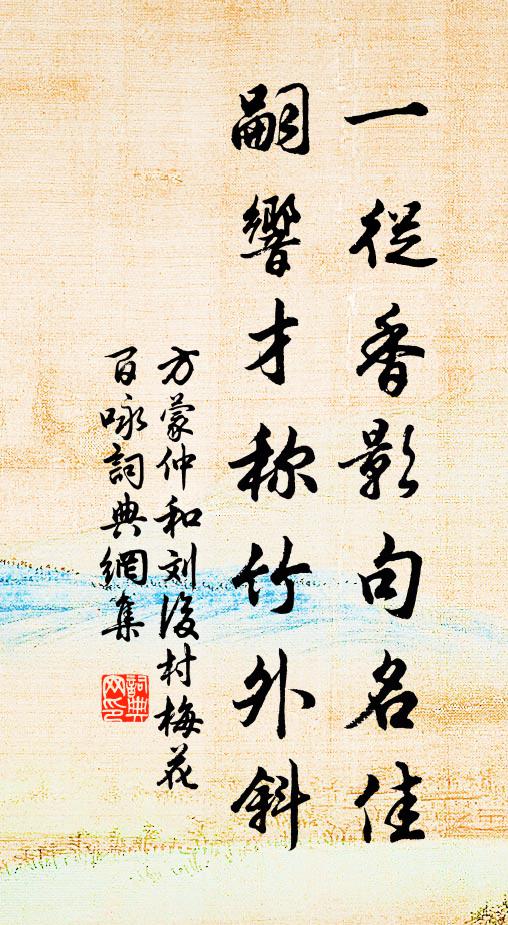 一從香影句名佳
嗣響才称竹外斜
方蒙仲和刘後村梅花
百咏詞典網集
詞典
网印